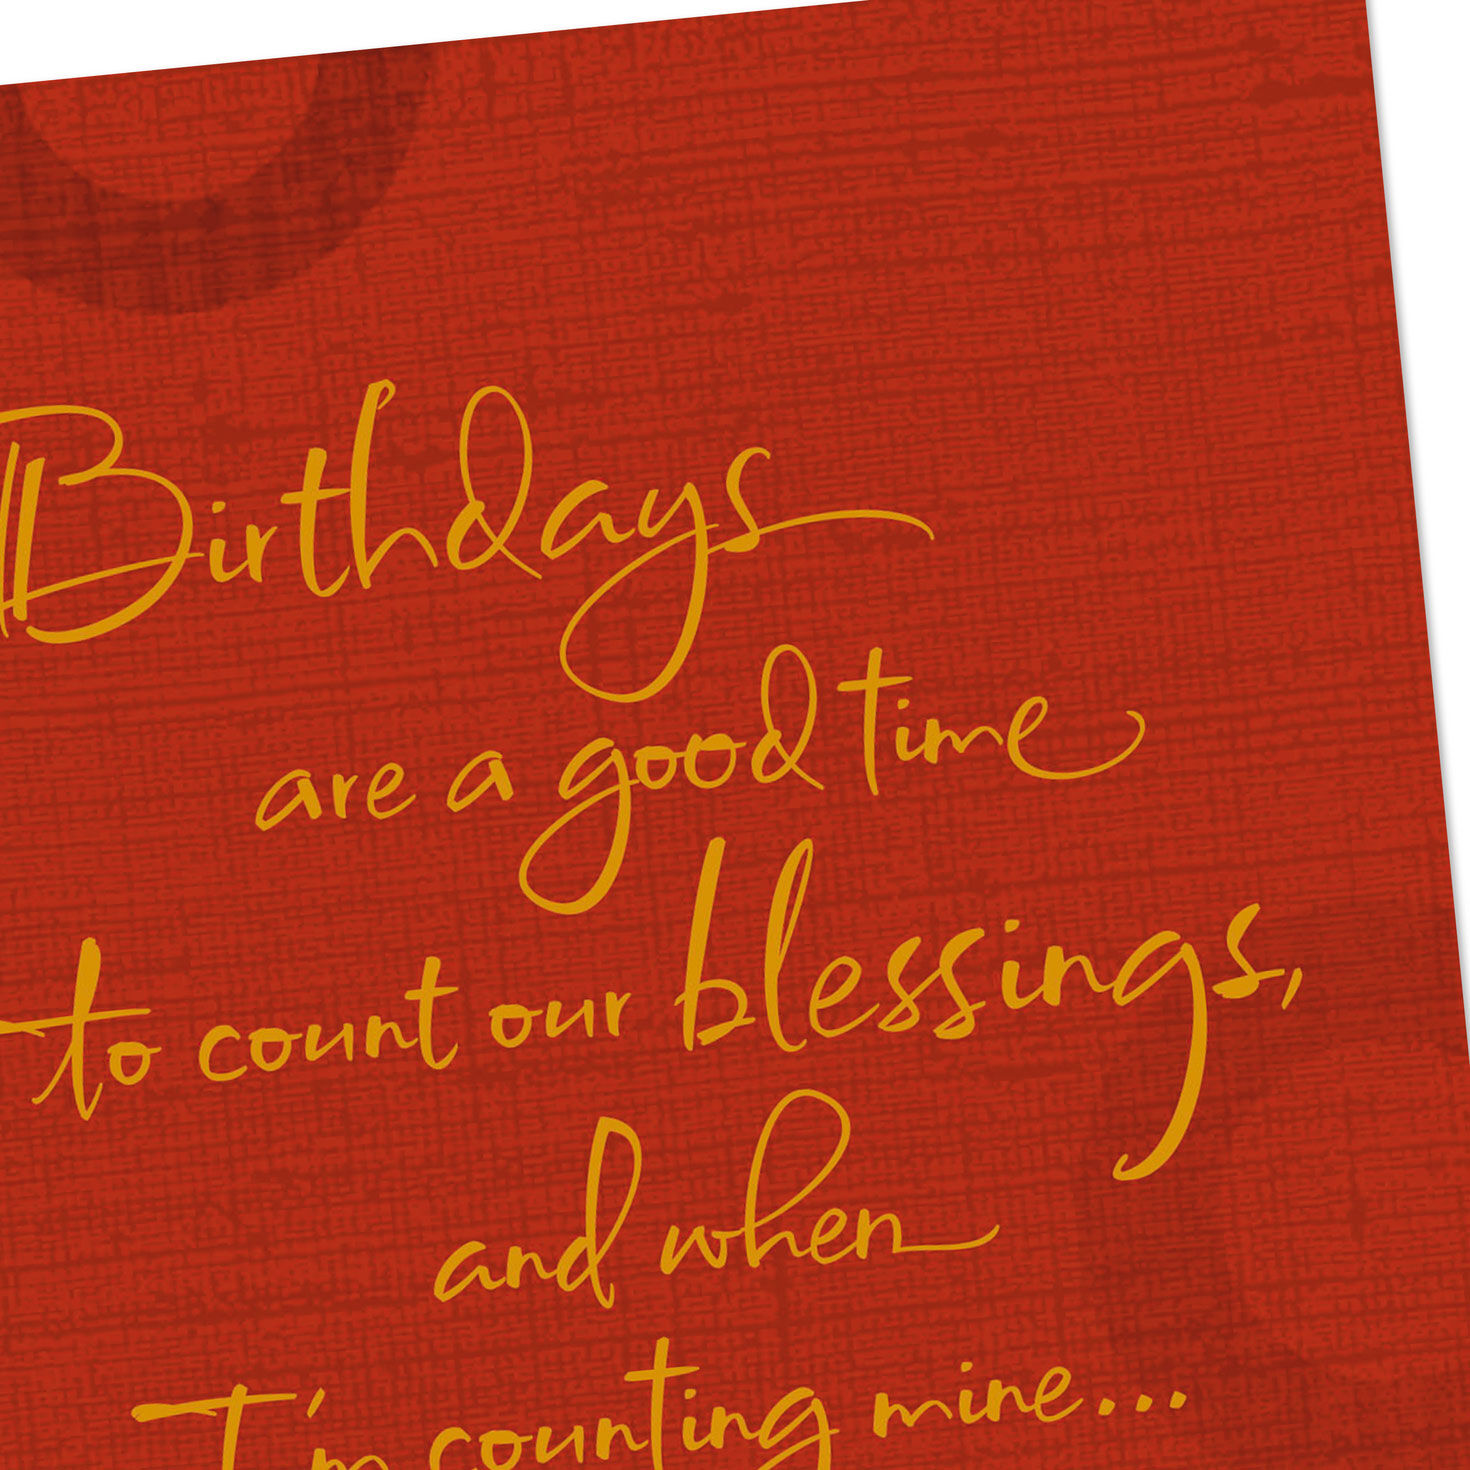 Birthdays
are a good time
to count our blessings,
and when
I'm counting mine...